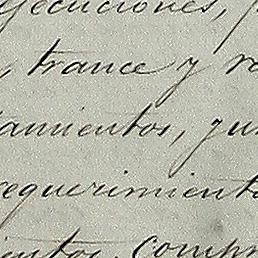 ejecuciones,
, trance y re
amientos, ju
requerimiento
ientos, Comp